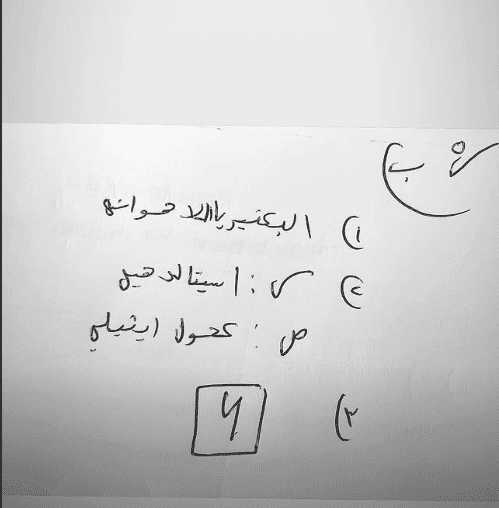 ب
١) البكتيريا اللاهوائيه
٢) س : اسيتالدهيد
ص : كحول ايثيلي
٣)